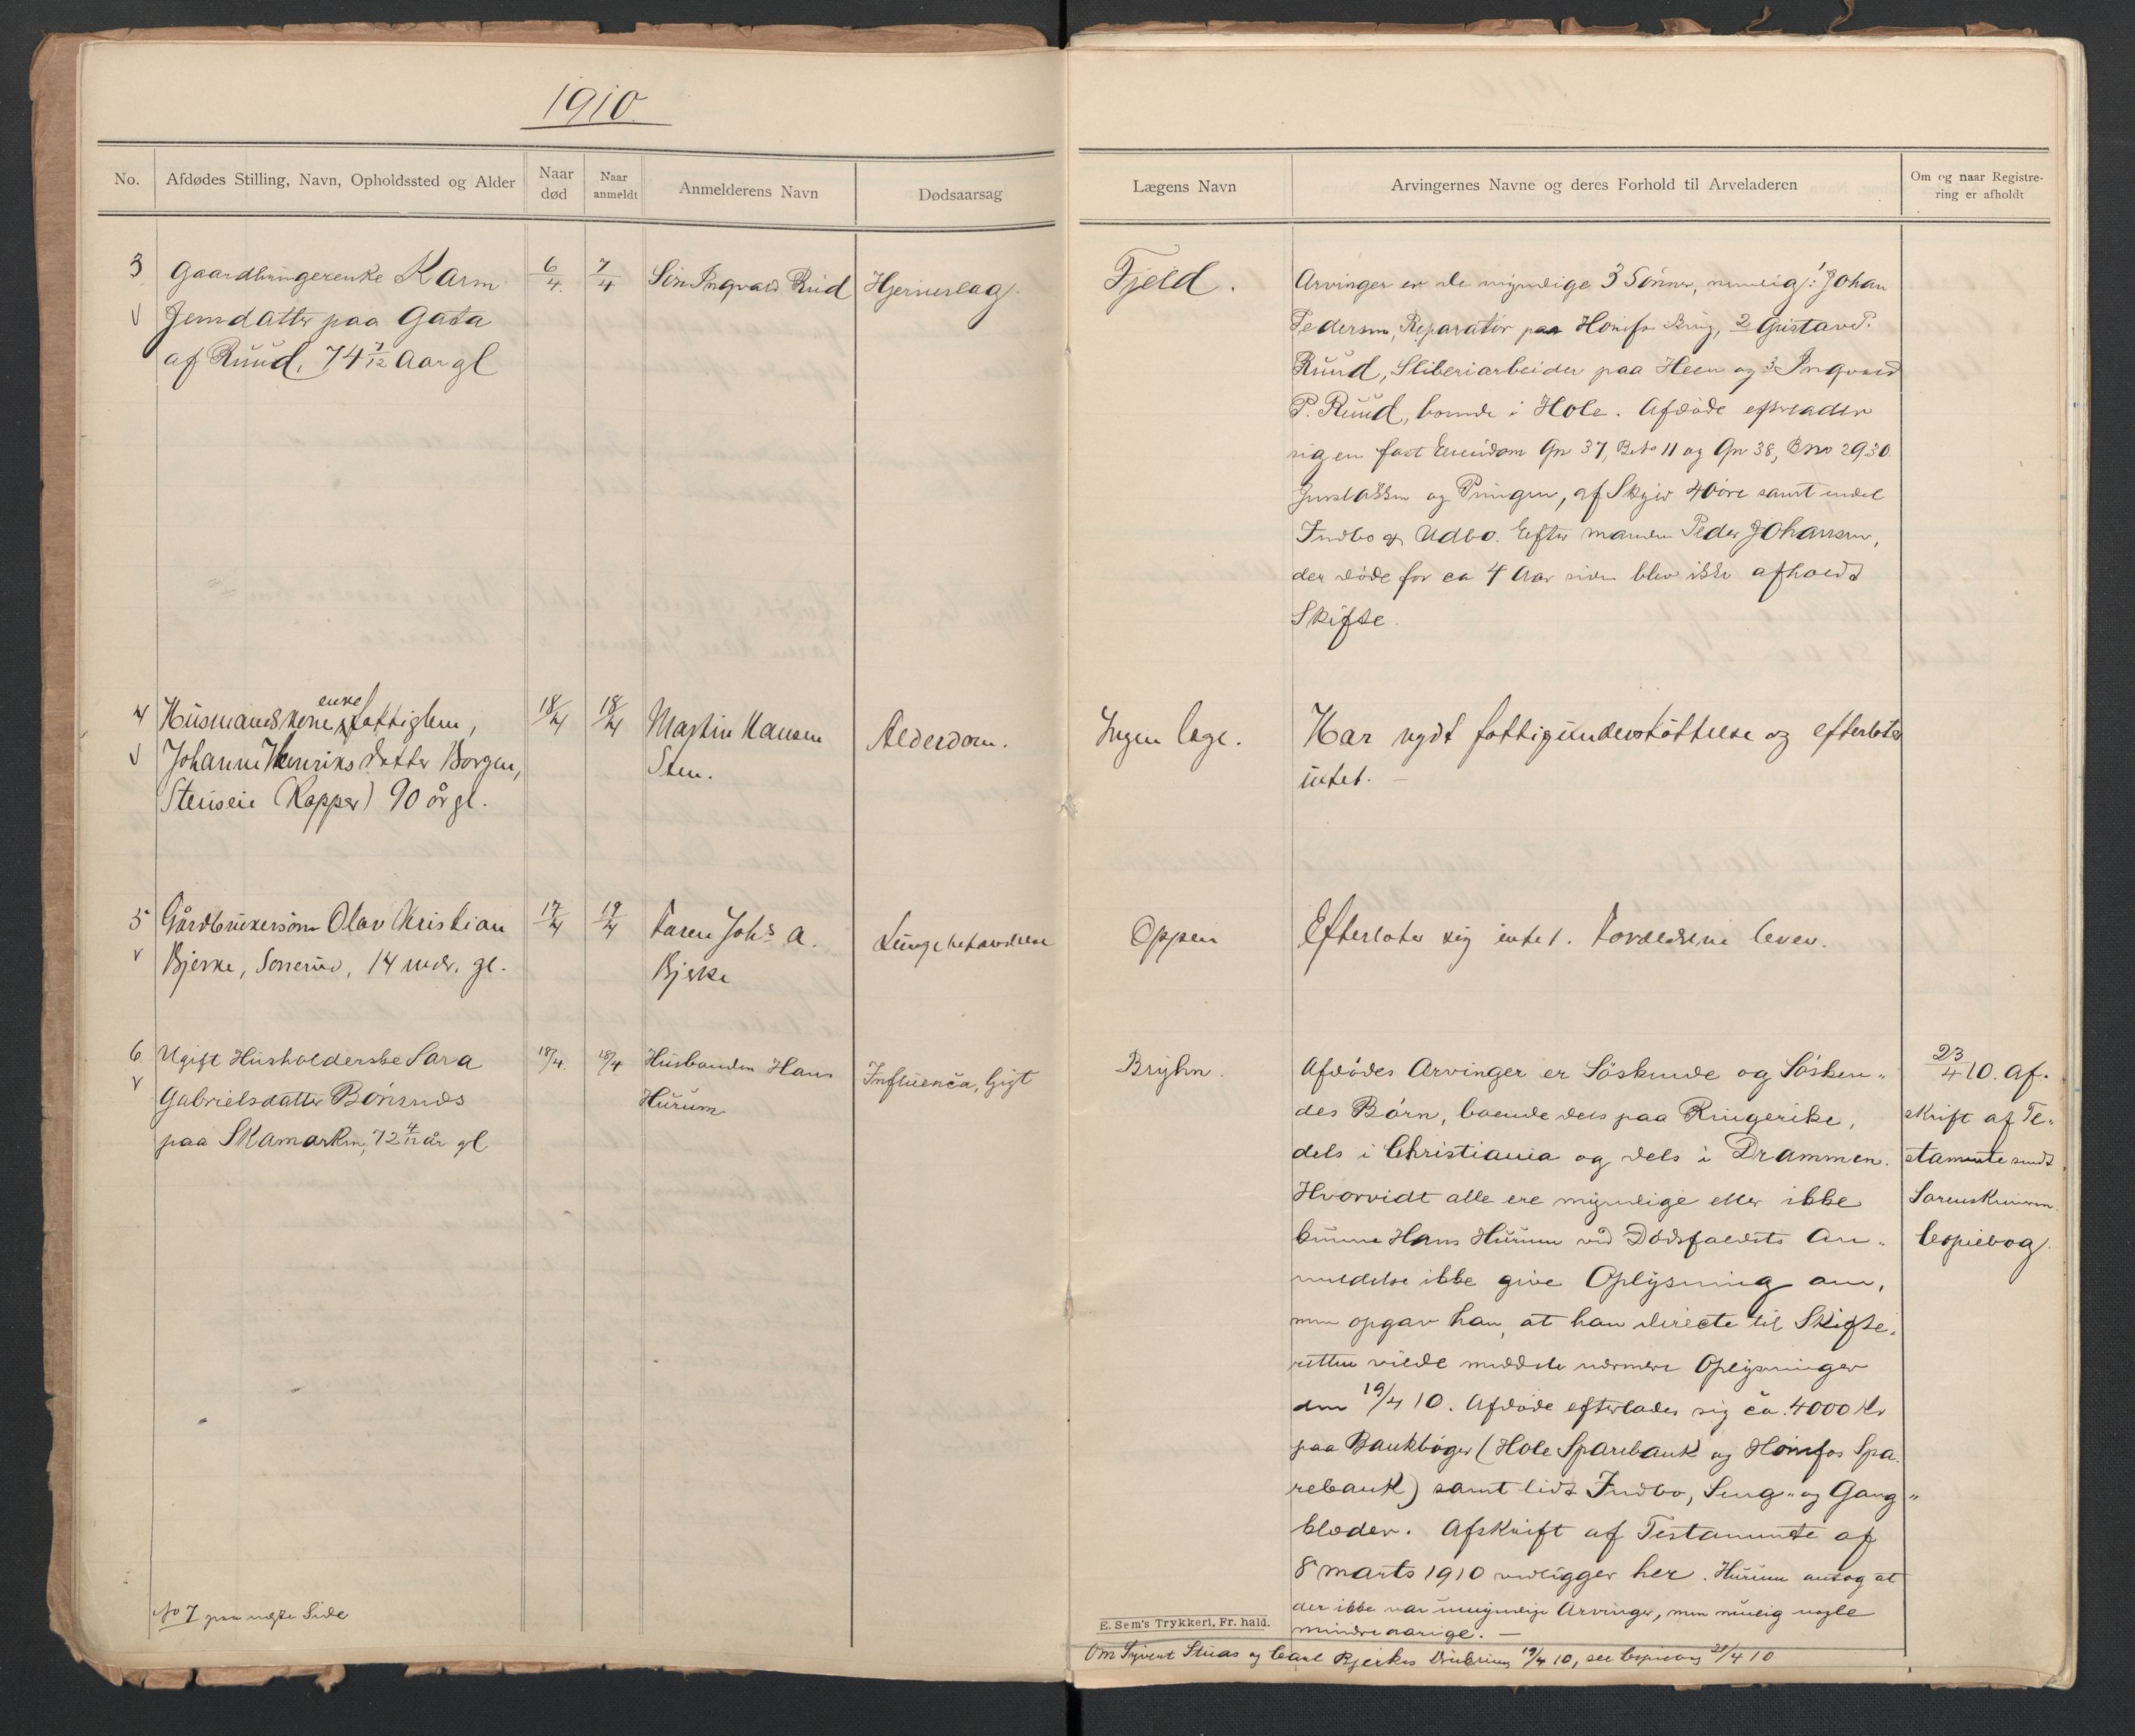 1910.
No.
Afdødes Stilling, Navn, Opholdssted og Alder
Naar død
Naar anmeldt
Anmelderens Navn
Dødsaarsag
Lægens Navn
Arvingernes Navne og deres Forhold til Arveladeren
Om og naar Registre-
ring er afholdt
3
Gaardbrugerenke Karen
Jensdatter paa Gata
af Ruud, 74 7/12 Aar gl
6/4.
7/4
Søn Ingvald Ruud
Hjerneslag.
Fjeld.
Arvinger er de myndige 3 Sønner, nemlig: 1 Johan
Pedersen, Reparatør paa Hønefos Brug, 2 Gustav P.
Ruud, Sliberiarbeider paa Heen og 3 Ingvald
P. Ruud, boende i Hole. Afdøde efterlader
sig en fast Eiendom Gn 37, Bno 11 og Gn 38, Bno 29 30.
og af Skyld 40 øre samt endel
Indbo og Udbo. Efter manden Peder Johansen,
der døde for ca 4 Aar siden blev ikke afholdt
Skifte.
4
Husmandskone enke, fattiglem,
Johanne Henriksdatter Borgen,
Stenseie (Kopper) 90 år gl.
18/4
18/4
Martin Hansen
Sten.
Alderdom.
Ingen læge.
Har nydt fattigunderstøttelse og efterlater
intet. —
5
Gårdbrukersøn Olav Kristian
Bjerke, Sonerud, 14 mdr. gl.
17/4
19/4
Karen Johs A.
Bjerke
Lungebetændelse
Oppen
Efterlater sig intet. Forældrene lever.
6.
Ugift Husholderske Sara
Gabrielsdatter Bönsnes
paa Skamarken, 72 4/12 år gl
18/4.
18/4
Husbonden Hans
Hurum
Influenca, Gigt
Bryhn.
Afdødes Arvinger er Söskende og Sösken-
des Börn, boende dels paa Ringerike,
dels i Christiania og dels i Drammen.
Hvorvidt alle ere myndige eller ikke
kunne Hans Hurum ved Dødsfaldets An-
meldelse ikke give Oplysning om,
men opgav han, at han directe til Skifte-
retten vilde meddele nærmere Oplysninger
den 19/4 10. Afdøde efterlader sig ca. 4000 Kr
paa Bankbøger (Hole Sparebank og Hönefos Spa-
rebank) samt lidt Indbo, Seng- og Gang-
klæder. Afskrift af Testamente af
8 marts 1910 vedligger her. Hurum antog at
der ikke var umyndige Arvinger, men mulig nogle
mindreaarige. —
23/4 10. Af-
skrift af Te-
stamente sendt
Sorenskriveren.
Copiebog.
No 7 paa næste Side
E. Sem's Trykkeri, Fr. hald.
Om og Carl Bjerkes 19/4 10, see Copibog 21/4 10